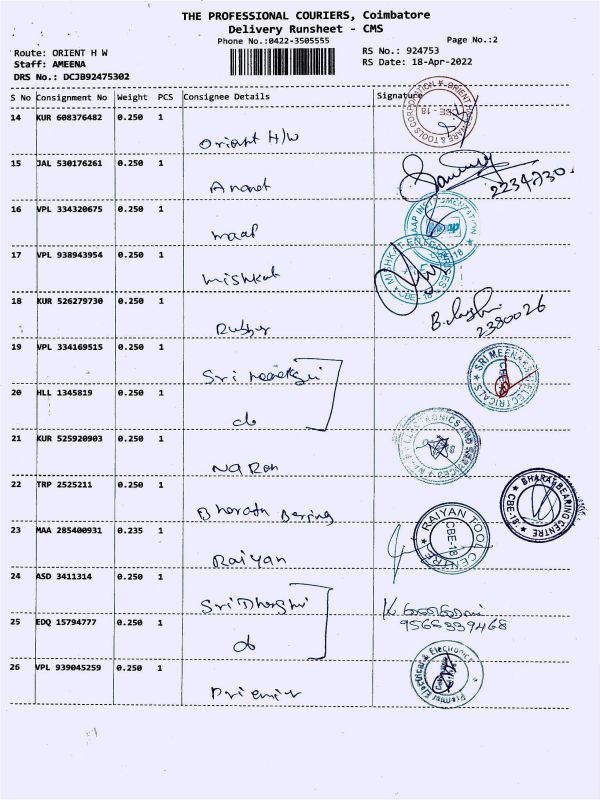 THE PROFESSIONAL COURIERS, Coimbatore
Delivery Runsheet - CMS
Phone No.:0422-3505555
Page No.:2
Route: ORIENT H W
Staff: AMEENA
DRS No.: DCJB92475302
RS No.: 924753
RS Date: 18-Apr-2022
S No Consignment No Weight PCS Consignee Details Signature
14 KUR 608376482 0.250 1
Orient H/W
CBE - 18
15 JAL 530176261 0.250 1
Anand
2234730
16 VPL 334320675 0.250 1
maap
17 VPL 938943954 0.250 1
Mishkat
CBE - 18
18 KUR 526279730 0.250 1
2380026
19 VPL 334169515 0.250 1
Sri meenakshi
SRI MEENAKSHI ELECTRICALS
20 HLL 1345819 0.250 1
do
21 KUR 525920903 0.250 1
22 TRP 2525211 0.250 1
Bharath Bering
BHARAT BEARING CENTRE
CBE-18
23 MAA 285400931 0.235 1
Raiyan
RAIYAN TOOL CENTRE
CBE-18
24 ASD 3411314 0.250 1
25 EDQ 15794777 0.250 1
do
26 VPL 939045259 0.250 1
Premier
Premier Electrical & Electronics